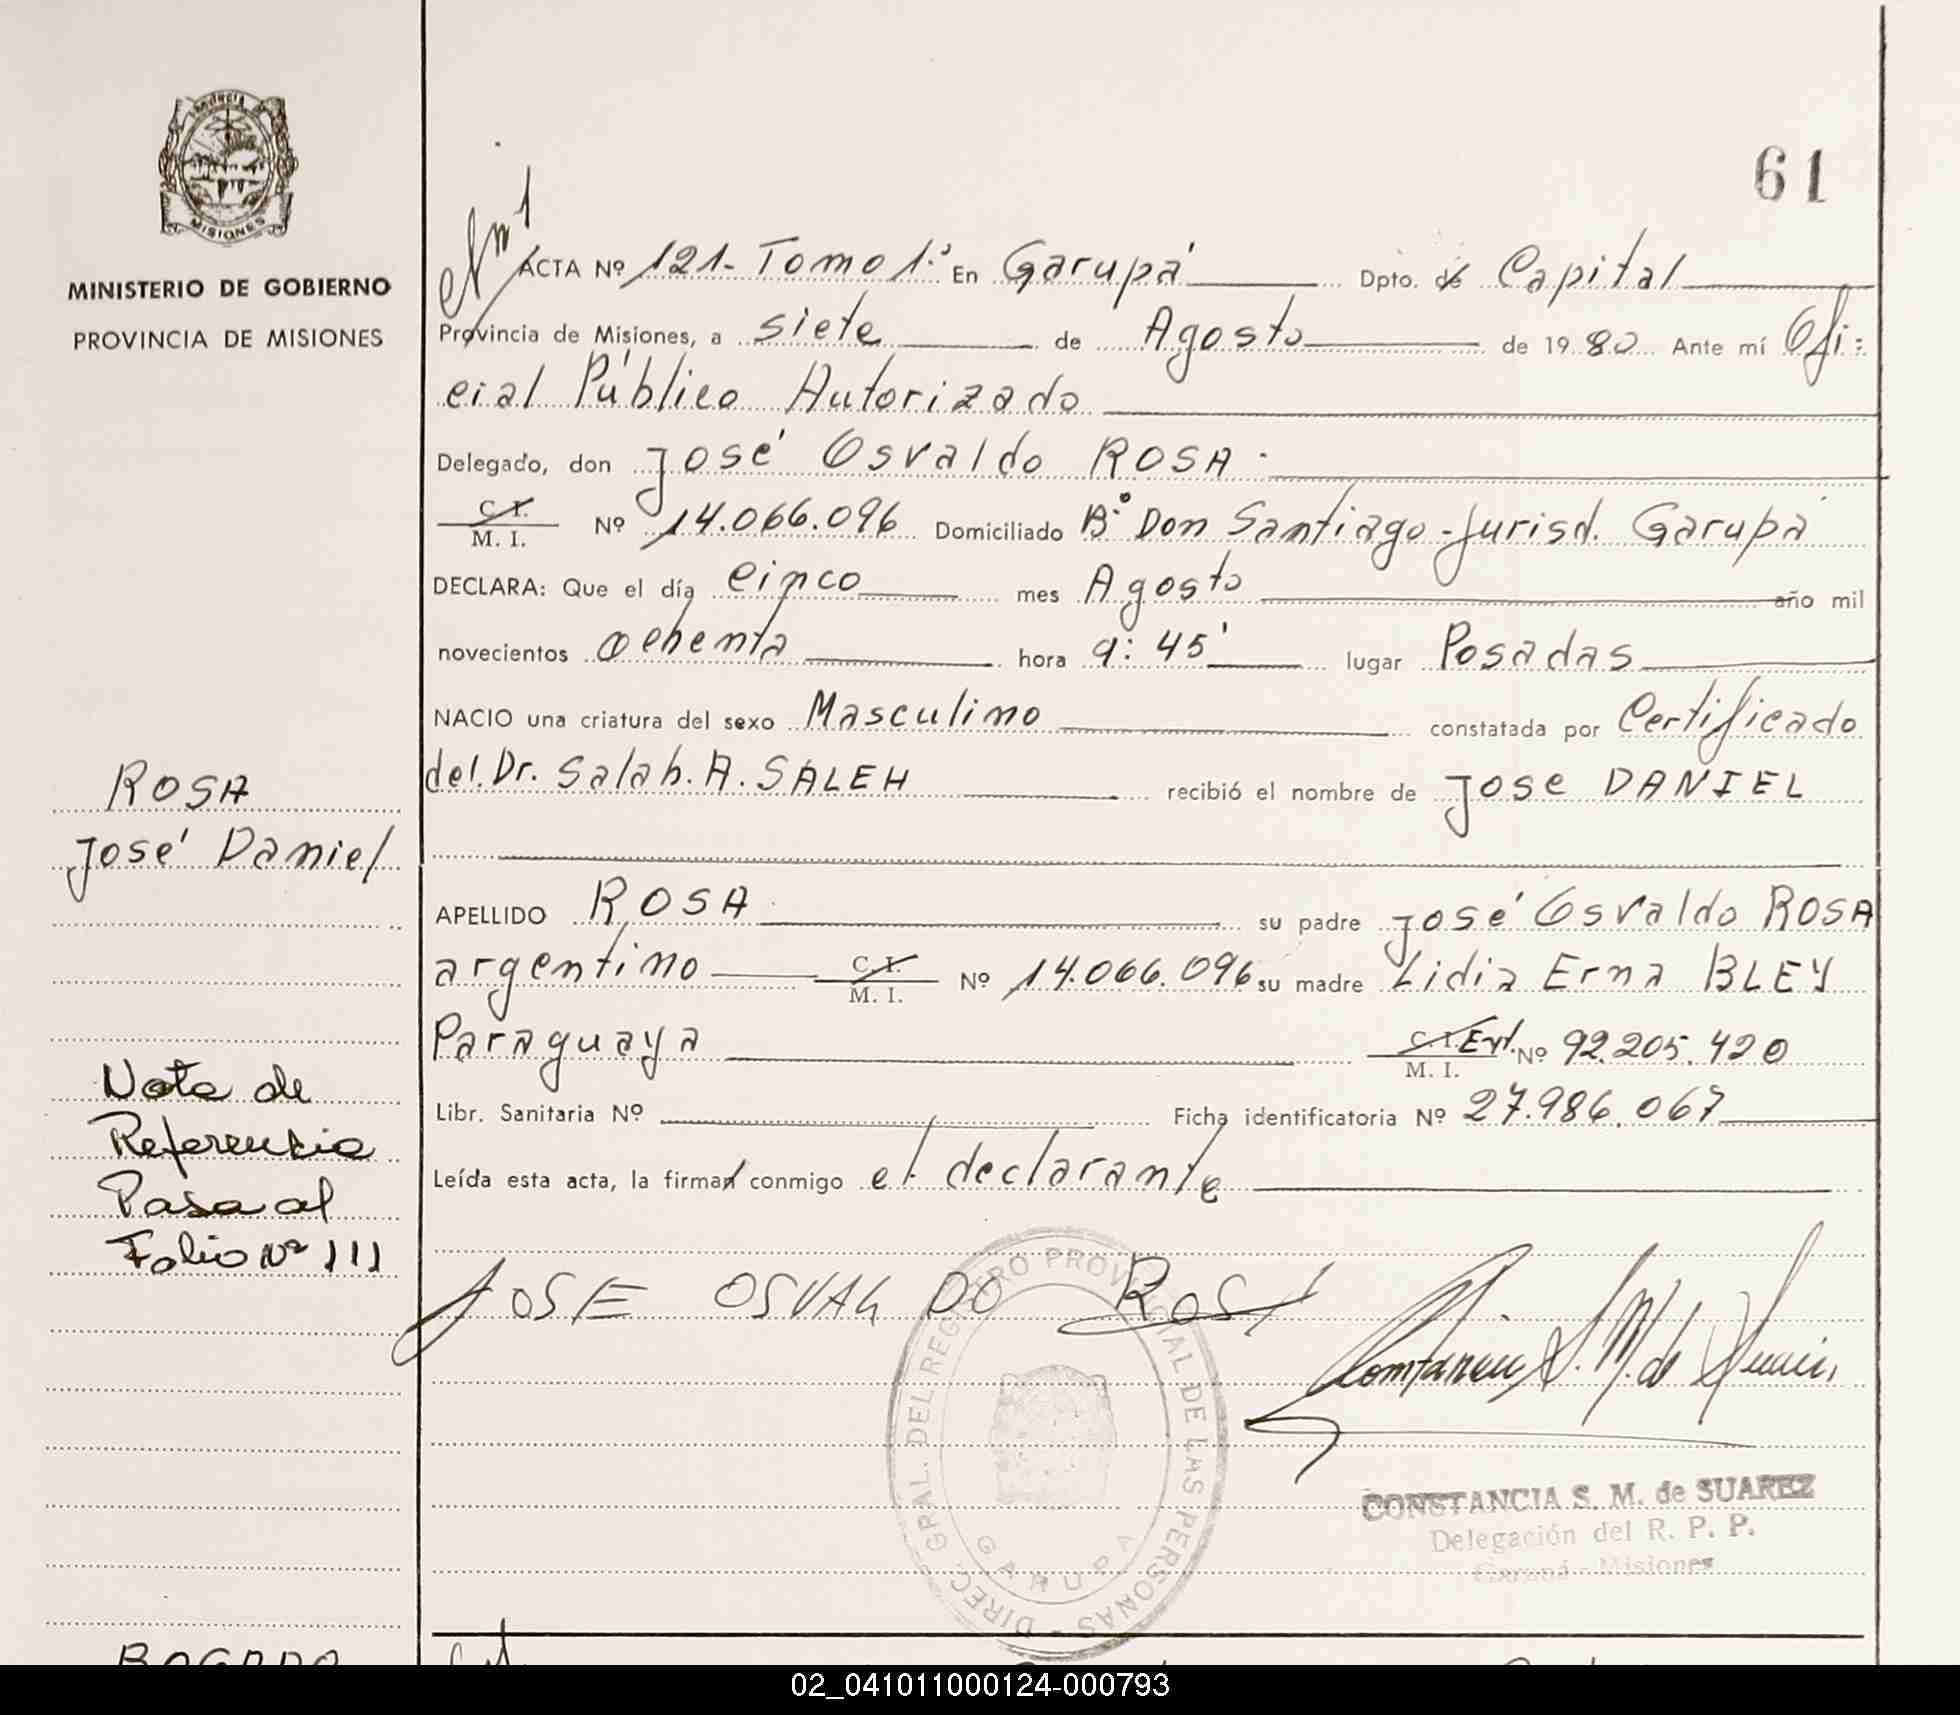 61
MINISTERIO DE GOBIERNO
PROVINCIA DE MISIONES
MISIONES
ACTA Nº 121- Tomo 1º En Garupá Dpto. de Capital
Provincia de Misiones, a siete de Agosto de 1980 Ante mí Ofi=
cial Público Autorizado
Delegado, don José Osvaldo ROSA.
C. I.
M. I. Nº 14.066.096 Domiciliado Bº Don Santiago-Jurisd. Garupá
DECLARA: Que el día cinco mes Agosto año mil
novecientos ochenta hora 9:45' lugar Posadas
NACIO una criatura del sexo Masculino constatada por Certificado
del Dr. Salah. A. SALEH recibió el nombre de Jose DANIEL
ROSA
José Daniel
APELLIDO ROSA su padre José Osvaldo ROSA
argentino C. I.
M. I. Nº 14.066.096 su madre Lidia Erna BLEY
Paraguaya C. I. Ext.
M. I. Nº 92.205.420
Libr. Sanitaria Nº Ficha identificatoria Nº 27.986.067
Leída esta acta, la firman conmigo el declarante
Nota de
Referencia
Pasa al
Folio Nº 111
JOSE OSVALDO ROSA
Constancia S. M. de Suarez
DIREC. GRAL. DEL REGISTRO PROVINCIAL DE LAS PERSONAS -
GARUPA
CONSTANCIA S. M. de SUAREZ
Delegación del R. P. P.
Garupá - Misiones
BOGADO
02_041011000124-000793